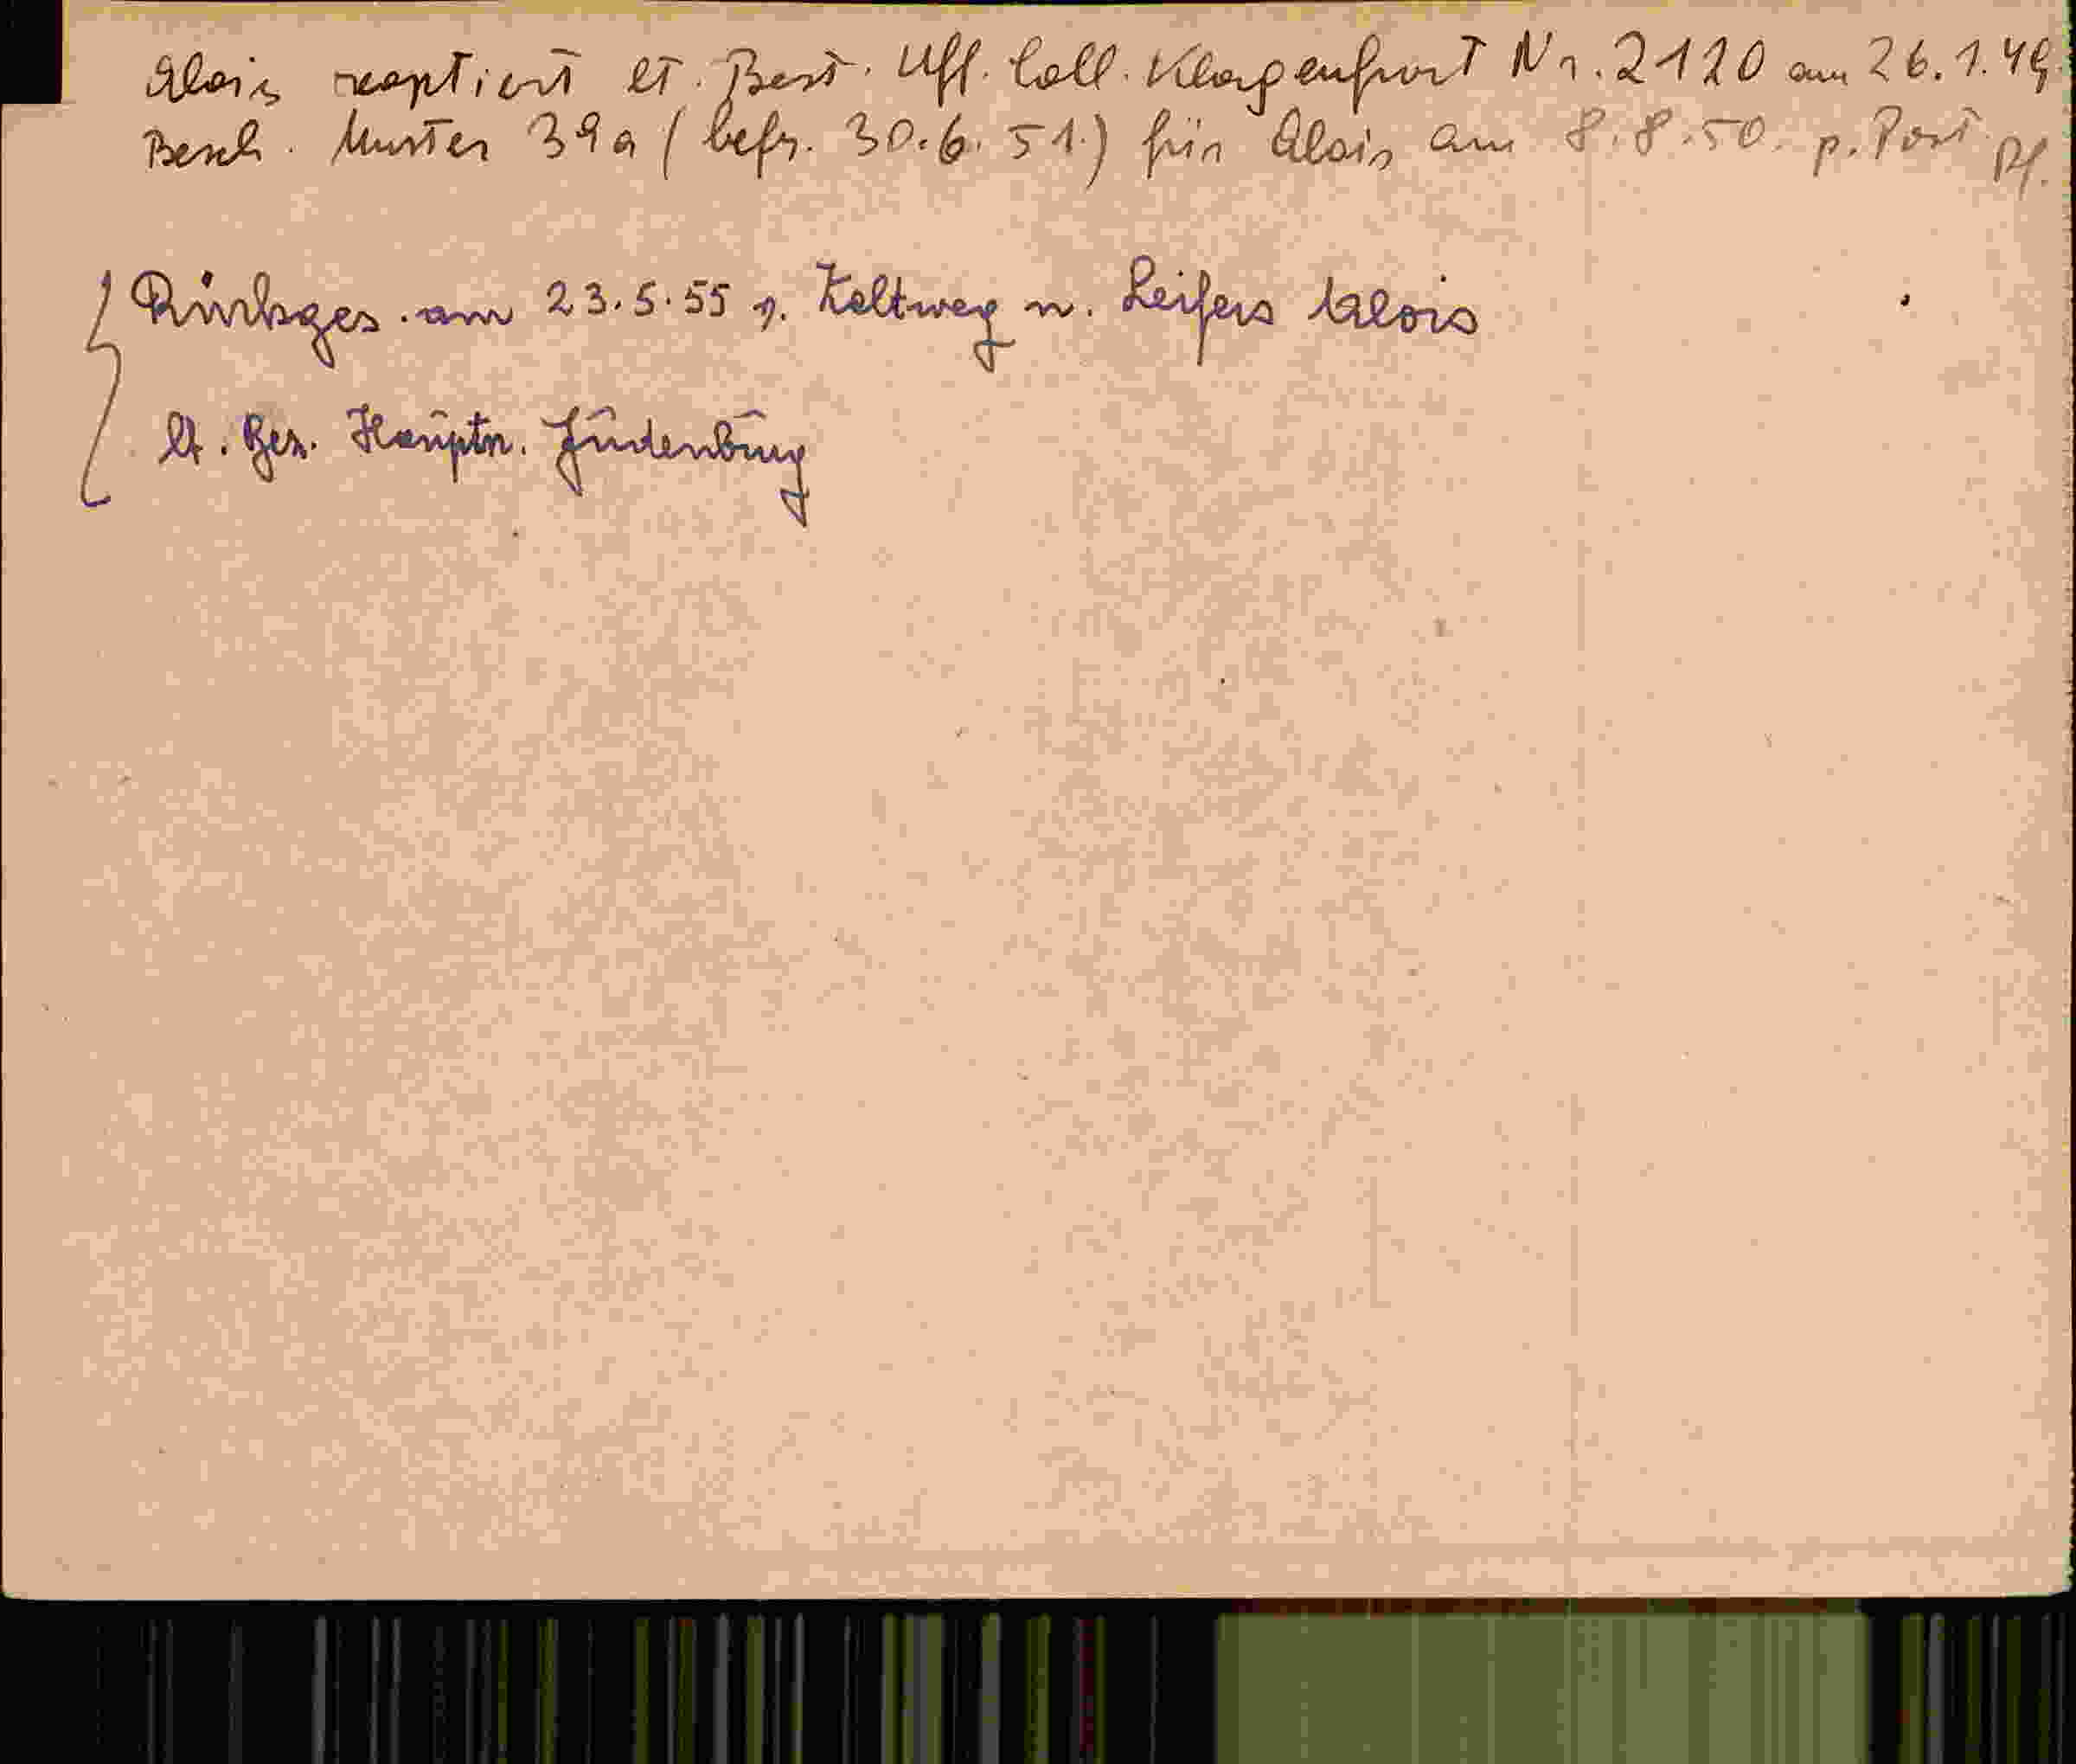 Alois reoptiert lt. Best. Uff. Coll. Klagenfurt Nr. 2120 am 26.1.49.
Besch. Muster 39a (befr. 30.6.51.) für Alois am 8.8.50. p. Post Pf.
Rückges. am 23.5.55 v. Katweg n. Leifers Alois
lt. Bez. Hauptm. Judenburg